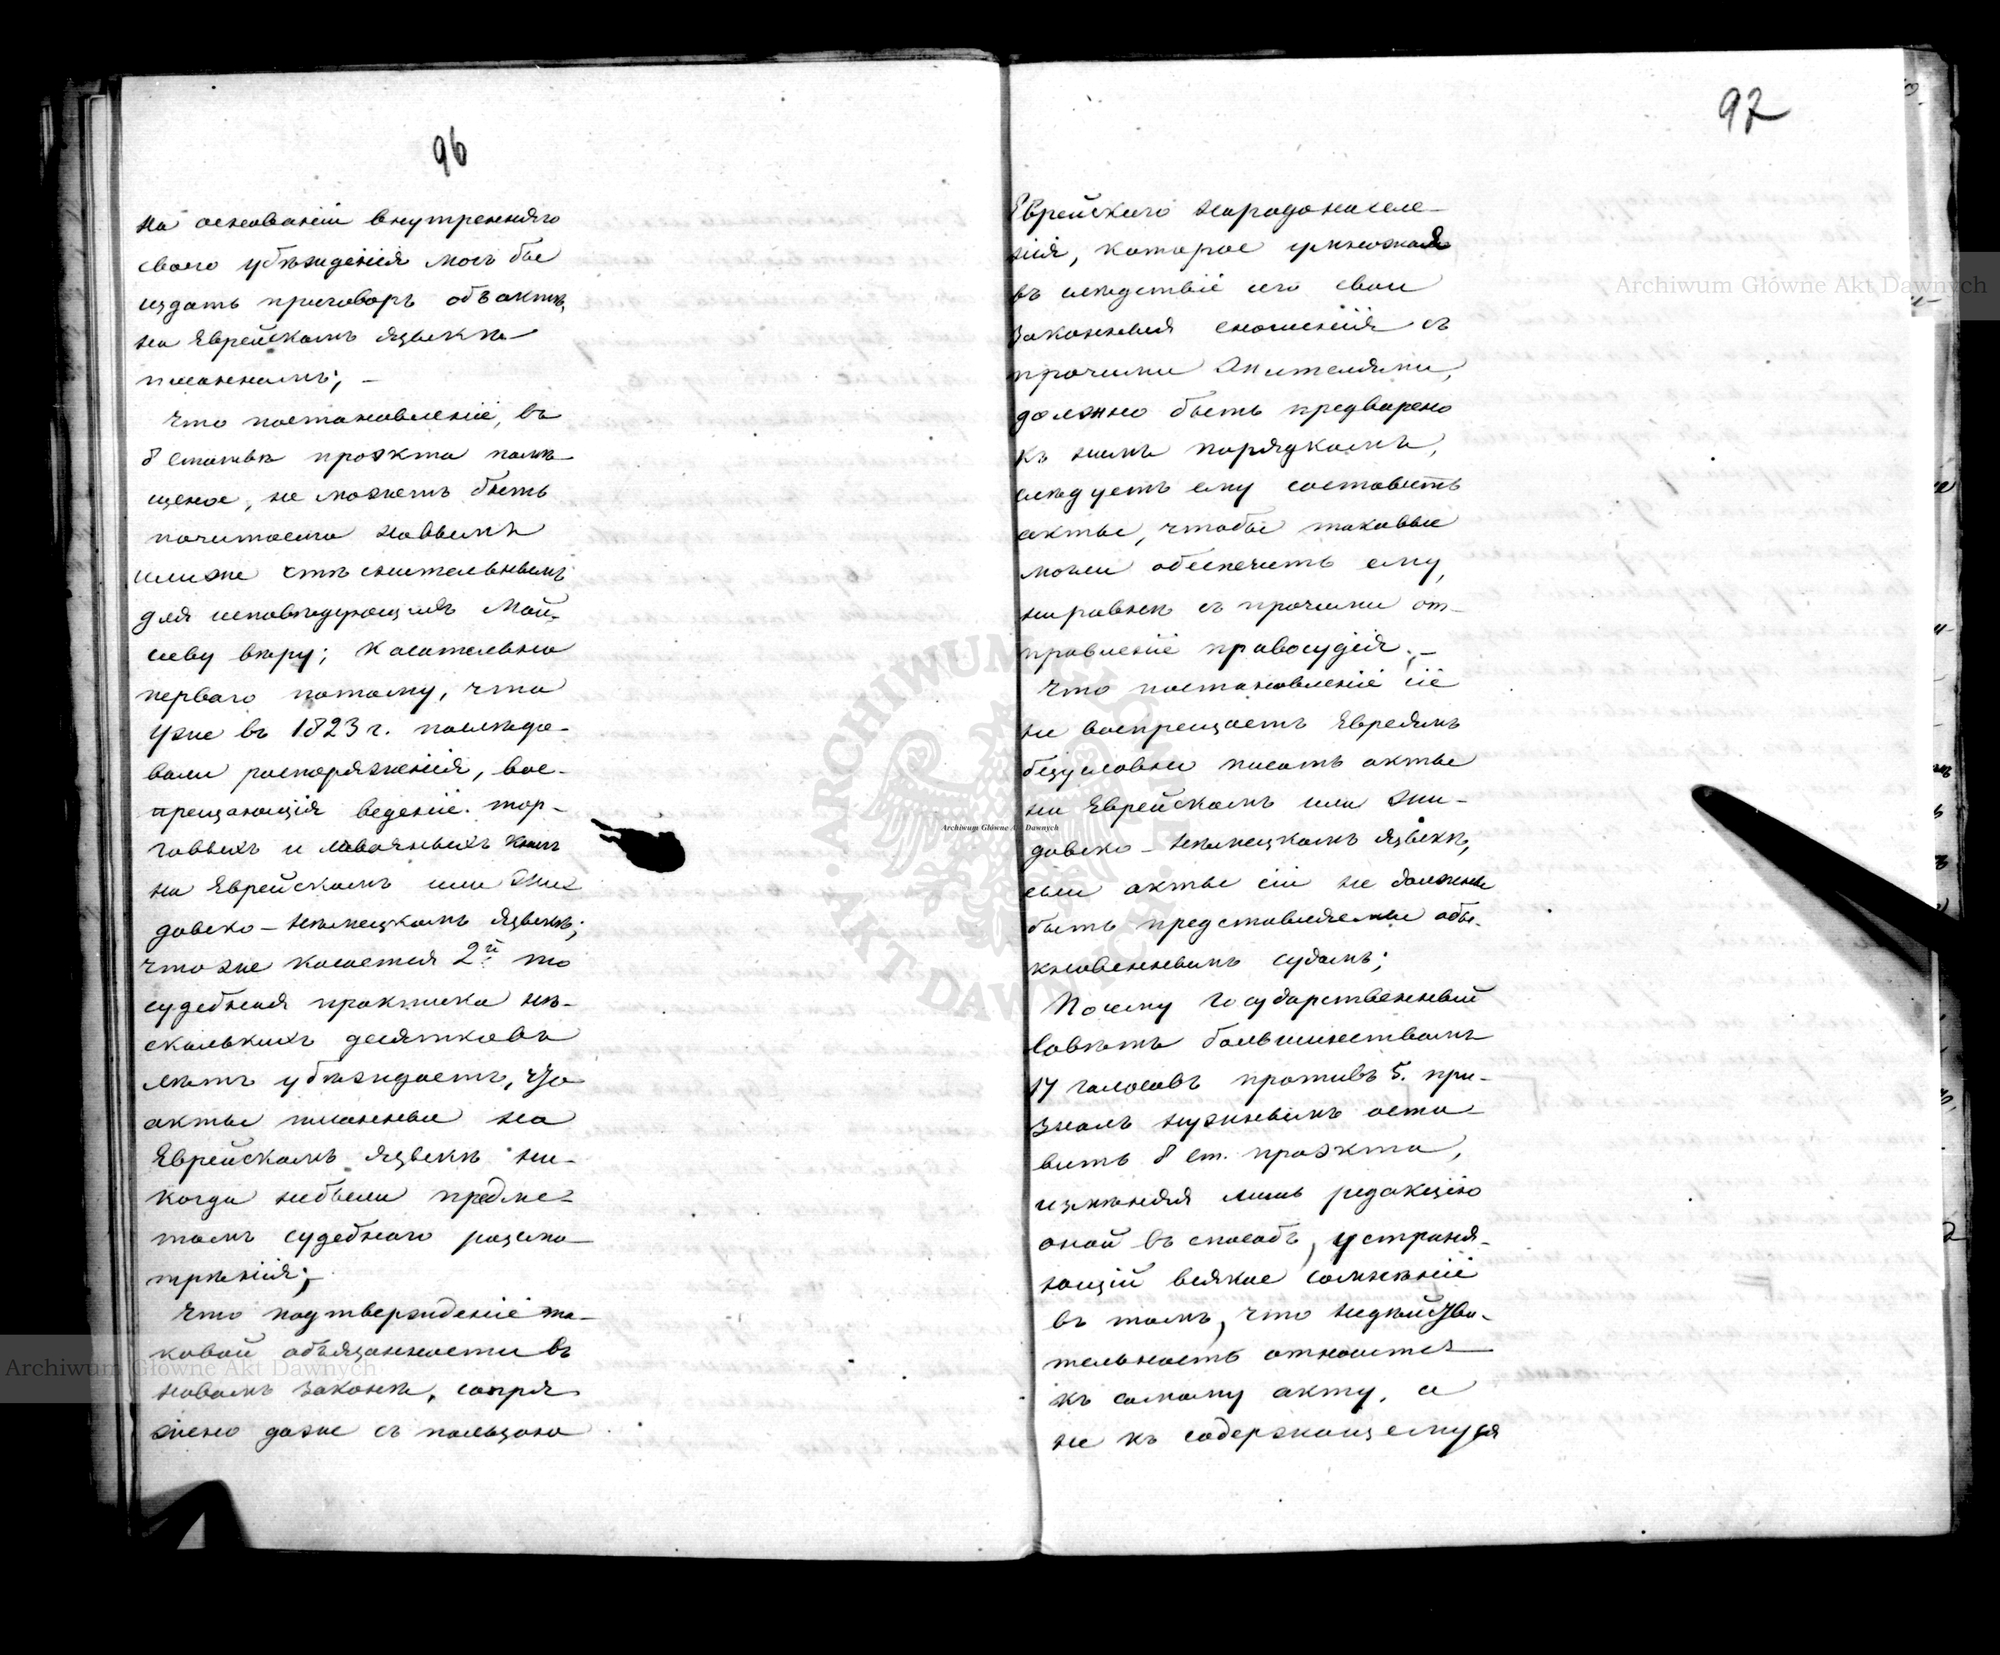 96
на основаніи внутренняго
своего убѣжденія могъ бы
издать приговоръ объ актѣ,
на Еврейскомъ языкѣ
писанномъ; —
Что постановленіе, въ
8 статьѣ проэкта помѣ-
щеное, не можетъ быть
почитаемо новымъ
илиже стѣснительнымъ
для исповѣдующихъ Мой-
сееву вѣру; касательно
перваго потому, что
уже въ 1823 г. послѣдо-
вали распоряженія, вос-
прещающія веденіе тор-
говыхъ и лавочныхъ книгъ
на Еврейскомъ или Жи-
довско-нѣмецкомъ языкѣ;
чтоже касается 2й то
судебная практика нѣ-
сколькихъ десятковъ
лѣтъ убѣждаетъ, что
акты писанные на
Еврейскомъ языкѣ ни-
когда небыли предме-
томъ судебнаго разсмо-
трѣнія; —
Что подтвержденіе та-
ковой обязанности въ
новомъ законѣ, сопря-
жено даже съ пользою
97
Еврейскаго народонаселе-
нія, которое умножая
въ слѣдствіе сего свои
законныя сношенія съ
прочими жителями,
должно быть предварено
къ
порядкомъ,
слѣдуетъ ему составить
акты, чтобы таковые
могли обеспечить ему,
наравнѣ съ прочими от-
правленіе правосудія; —
Что постановленіе сіе
не воспрещаетъ Евреямъ
безусловно писать акты
на Еврейскомъ или Жи-
довско-нѣмецкомъ языкѣ,
если акты сіи не должны
быть представляемы обы-
кновеннымъ судамъ;
Посему Государственный
Совѣтъ большинствомъ
17 голосовъ противъ 5. при-
зналъ нужнымъ оста-
вить 8 ст. проэкта,
измѣняя лишь редакцію
оной въ способъ, устраня-
ющій всякое сомнѣніе
въ томъ, что недѣйстви-
тельность относится
къ самому акту, а
не къ содержащемуся
Archiwum Główne Akt Dawnych
Archiwum Główne Akt Dawnych
Archiwum Główne Akt Dawnych
ARCHIWUM GŁÓWNE AKT DAWNYCH